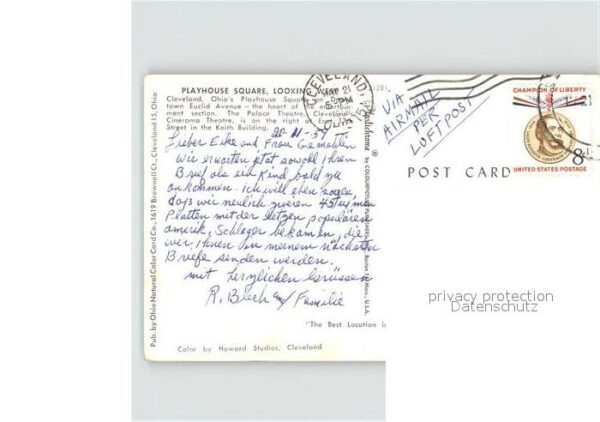 PLAYHOUSE SQUARE, LOOKING WEST
Cleveland, Ohio's Playhouse Square on Down-
town Euclid Avenue — the heart of the entertain-
ment section. The Palace Theatre, Cleveland's
Cinerama Theatre, is on the right on East
Street in the Keith Building.
20-11-59
Lieber Eike und Frau Gemahlin
Wir erwarten jetzt sowohl Ihren
Brief als ein Kind bald zu
ankommen. Ich will eben sagen,
daß wir neulich zweien 45tu/min
Platten mit der letzen populären
amerik. Schlager bekamen, die
wir, Ihnen in meinem nächsten
Briefe senden werden.
mit herzlichen Grüssen
R. Blech und Familie
"The Best Location
Color by Howard Studios, Cleveland
Pub. by Ohio Natural Color Card Co., 1619 Brownell Ct., Cleveland 15, Ohio
CLEVELAND,
VIA
AIRMAIL
PER
LUFTPOST
CHAMPION OF LIBERTY
8¢
UNITED STATES POSTAGE
POST CARD
privacy protection
Datenschutz